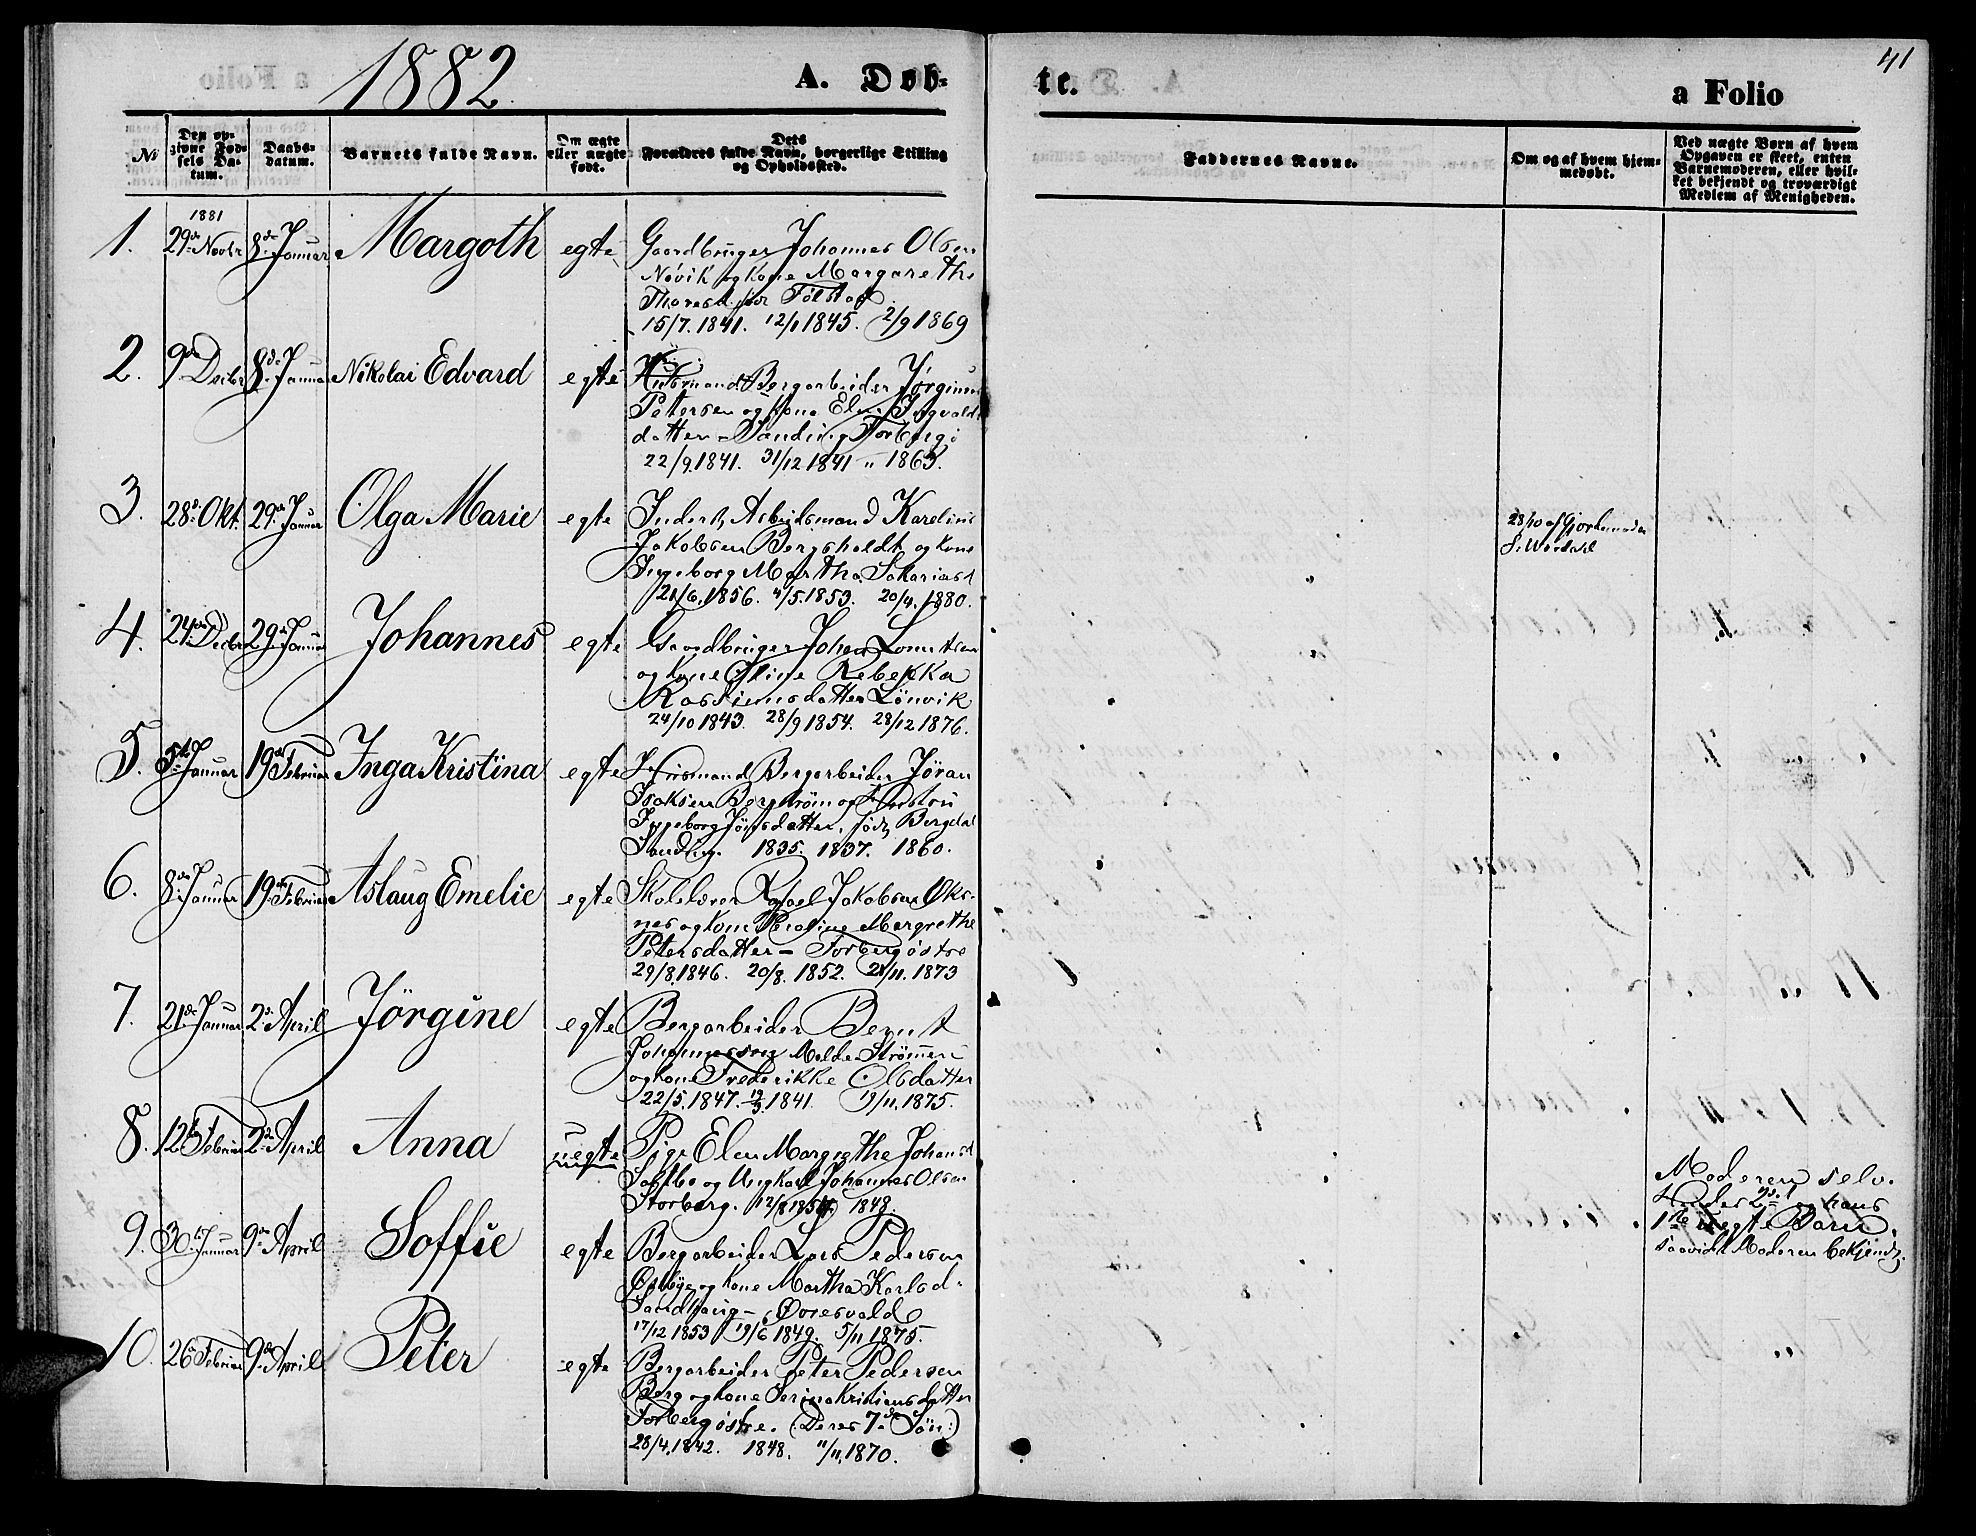 1882
A. Døb-
te.
a Folio
41
No
Den op-
givne Fød-
sels Da-
tum.
Daabs-
datum.
Barnets fulde Navn.
Om ægte
eller uægte
født.
Dets
Forældres fulde Navn, borgerlige Stilling
og Opholdssted.
Faddernes Navne.
Om og af hvem hjem-
medøbt.
Ved uægte Børn af hvem
Opgaven er skeet, enten
Barnemoderen, eller hvil-
ket bekjendt og troværdigt
Medlem af Menigheden.
1881
1. 29de Novbr 8de Januar Margoth egte Gaardbruger Johannes Olsen
Nøvik og Kone Margarethe
Thoresd. før
15/7.1841. 12/1 1845. 2/9 1869
2. 9de Decbr 8de Januar Nikolai Edvard egte Husmand Bergarbeider Jørginus
Petersen og Kone Elen Ingvalds
datter - Sanding
22/9.1841. 31/12 1841 " 1863.
3. 28de Okt. 29de Januar Olga Marie egte Inderst, Arbeidsmand Karelius
Jakobsen Bergsholdt og Kone
Ingeborg Martha Sakariasd
21/6.1856. 4/5.1853. 20/4.1880.
28/10 af Gjordemoder
4. 24de Decbr 29de Januar Johannes egte Gaardbruger Johan
og Kone Oline Rebekka
Lønvik
24/10 1843. 28/9 1854. 28/12 1876.
5. 5te Januar 19de Februar Inga Kristina egte Husmand Bergarbeider Jøran
Isaksen Bergstrøm og Hustru
Ingeborg Jønsdatter, født Bergdal
Sanding. 1835. 1837. 1860.
6. 8de Januar 19de Februar Aslaug Emelie egte Skolelærer Rafael Jakobsen Øks-
nes og Kone Peroline Margrethe
Petersdatter - Forbergøstre
29/8.1846. 20/8. 1852. 21/11. 1873
7. 21de Januar 2de April Jörgine egte Bergarbeider Bernt
Johannessen Molden Strømmen
og Kone Frederikke Olsdatter
22/5.1847. 12/3.1841. 19/11.1875.
8. 12te Februar 2de April Anna uegte Pige Elen Margrethe Johansd
og Ungkarl Johannes Olsen
Storberg. 12/8 1854. 1848.
Moderen selv.
Hendes 2det og hans
1ste uegte Barn,
saavidt Moderen bekjendt.
9. 30te Januar 9de April Soffie egte Bergarbeider Lars Pedersen
Østbye og Kone Martha Karlsd.
Sandhaug -
17/12 1853 19/6 1849. 5/11 1875.
10. 26de Februar 9de April Peter egte Bergarbeider Peter Pedersen
Berg og Kone Serina Kristiansdatter
Forbergøstre. (Deres 7de Søn:)
28/4.1842. 1848. "/11.1870.